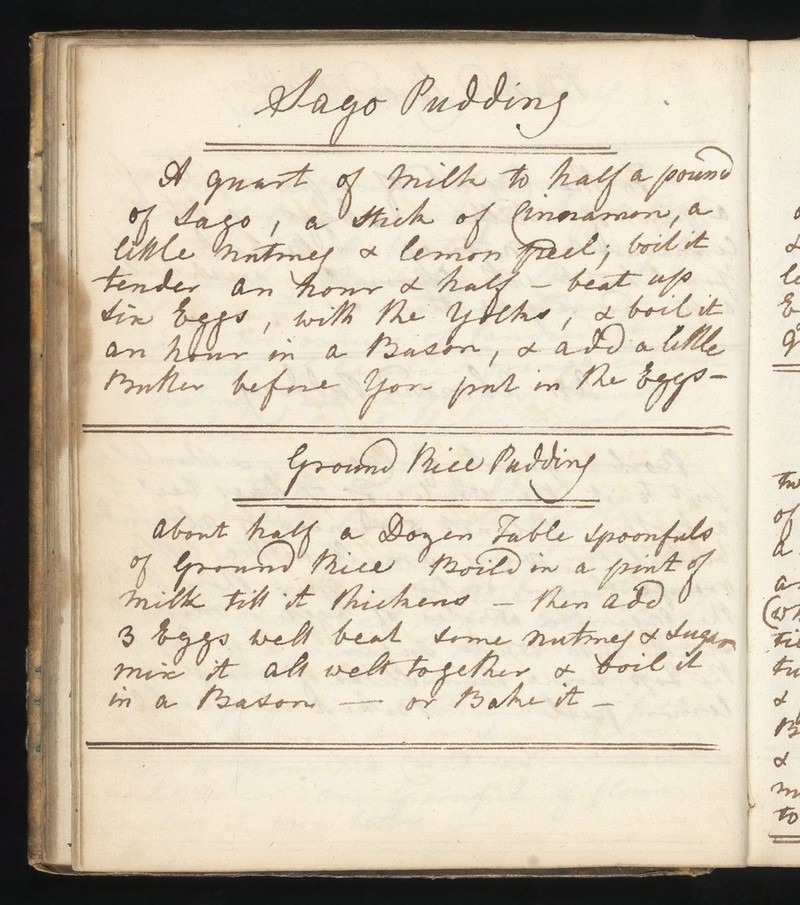 Sago Pudding
A quart of Milk to half a pound
of Sago, a Stick of Cinnamon, a
little Nutmeg & lemon peel; boil it
tender an hour & half - beat up
Six Eggs, with the Yolks, & boil it
an hour in a Bason, & add a little
Butter before you put in the Eggs -
Ground Rice Pudding
About half a Dozen Table Spoonfuls
of Ground Rice Boild in a pint of
Milk till it thickens - then add
3 Eggs well beat some Nutmeg & Sugar
mix it all well together & boil it
in a Bason — or Bake it -